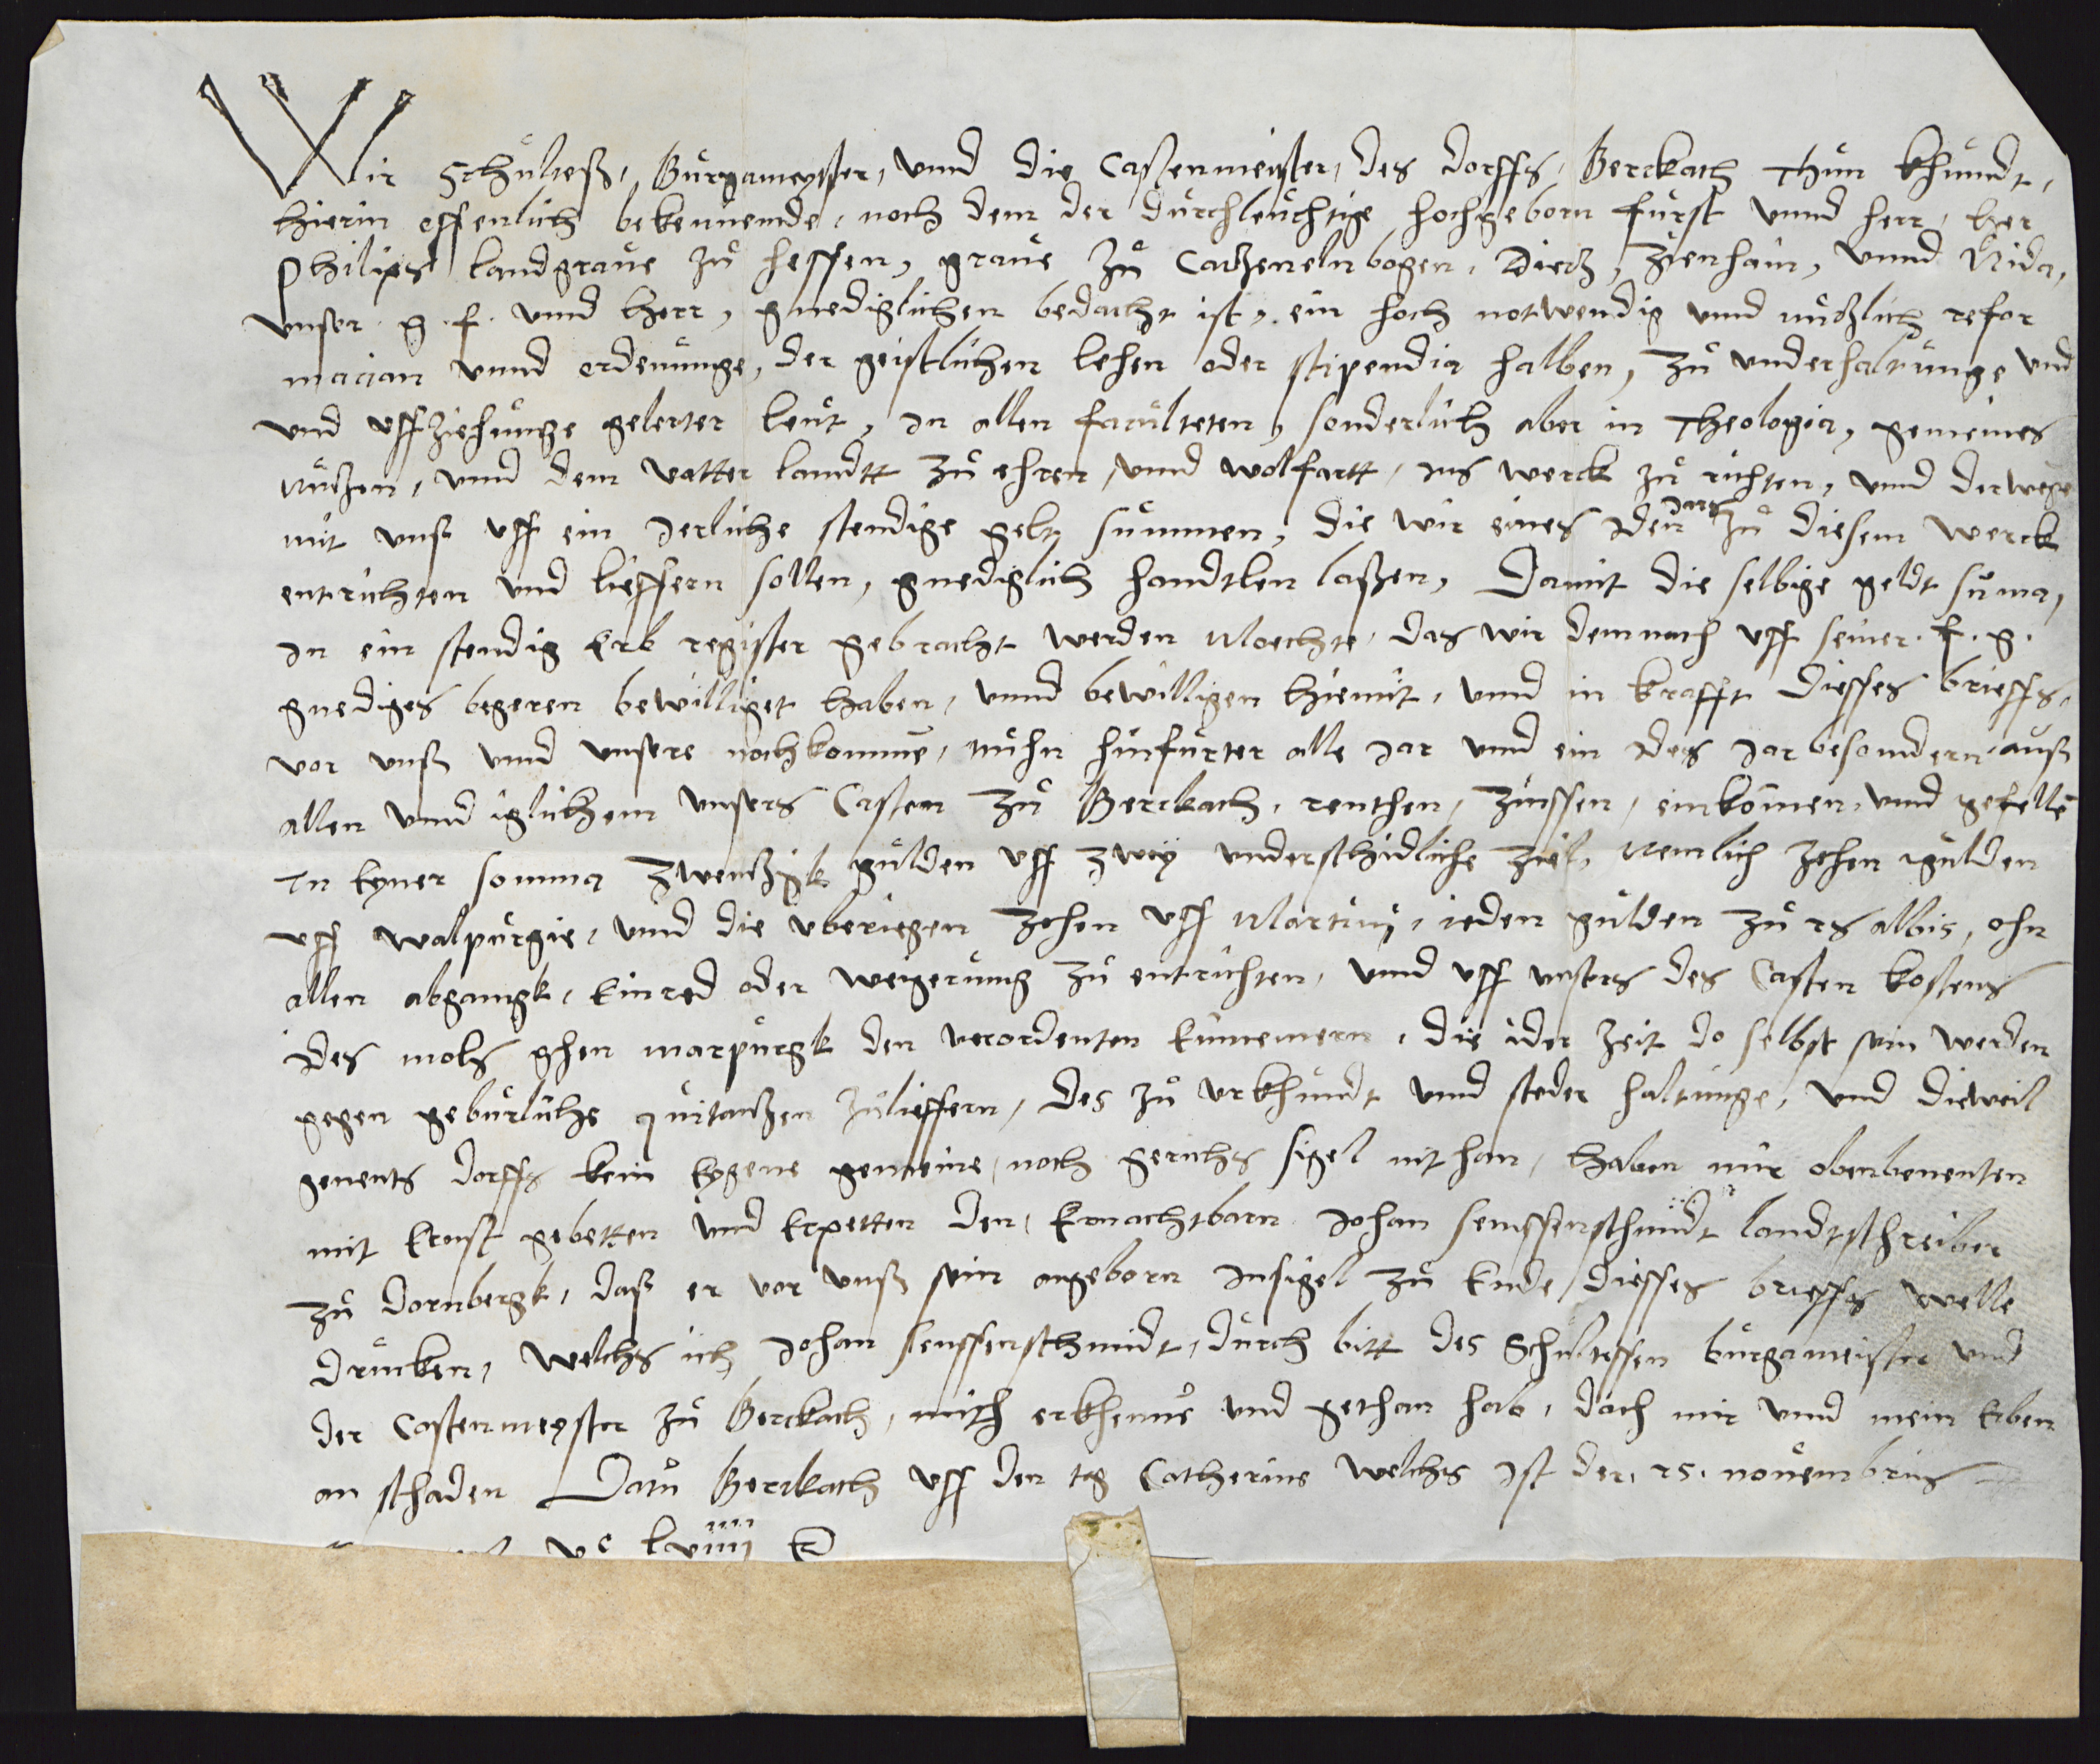 Wir Schultes, Burgameyster, unnd die Castenmeister, des dorffs, Berckach thun khundt,
hierin offenlich bekennende, noch dem der durchleuchtige hochgeborn furst unnd herr, her
Philips landgraue zu hessen, graue zu Catzenelnbogen, Dietz, Zienhain, unnd Nida,
unser g. f. unnd herr, gnediglichen bedacht ist, ein hoch notwendig unnd nutzlich refor
macion unnd ordenunge, der geistlichen lehen oder stipendia halben, zu underhaltunge und
und uffziehunge gelerter leut, in allen faculteten, sonderlich aber in Theologia, gemeines
nutzen, unnd dem vatter landtt zu ehren, unnd wolfartt, ins werck zu richten, unnd derwege
mit unß uff ein Jerliche stendige gelt summen, die wir eines iden Jars zu diesem werck
entrichten und lieffern sollen, gnediglich handtlen laßen, Damit die selbige geldt suma,
in ein stendig Erb register gebracht werden Moechte, das wir demnach uff seiner f. g.
gnediges begeren bewilliget haben, unnd bewilligen hiemit, unnd in krafft diesses brieffs,
vor unß unnd unsere nochkomme, nuhn hinfurter alle Jar unnd ein Ides Jar besondern auß
allen unnd iglichem unsers Casten zu Berckach, renthen, zinssen, einkomen, unnd gefelle
In Eyner somma zwentzigk gulden uff zwey underschidliche ziel, Nemlich zehen gulden
uff walpurgie, unnd die uberiegen zehen uff Martini, ieden gulden zu 25 albis, ohn
allen abgangk, Einred oder weigerung zu entrichten, unnd uff unsers des Casten kostens
Ides mols ghen marpurgk den verordenten Einnemern, die ider zeit do selbst sein werden
gegen geburliche quitantzen zulieffern, des zu urkhundt unnd steder haltunge, unnd dieweil
genents dorffs kein Eygene gemeine, noch gerichs sigel nit han, haben mir obenbenenten
mit Ernst gebetten und Erpetten den Ernachtbarn Johan senssenschmidt landtschreiber
zu dornbergk, das er vor unß sein angeborn Insigel zu Ende diesses brieffs welle
drucken, welchs ich Johan senssenschmidt, durch bitt des Schultessen burgameister und
der Castenmeyster zu Berckach, mich erkhenne und gethan hab, doch mir unnd mein Erben
an schaden Datu Berckach uff den tag Catherine welchs Ist der 25. nouembris
vᶜ lxiiii